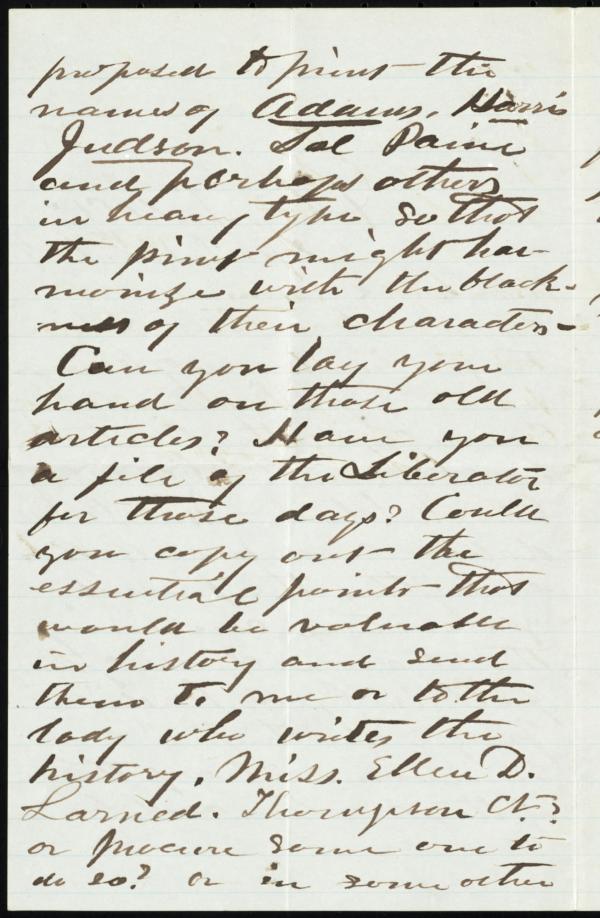 proposed to print the
names of Adams, Harris
Judson. Sol Paine
and perhaps others
in heavy type so that
the print might har-
monize with the black-
ness of their characters-
Can you lay your
hand on those old
articles? Have you
a file of the Liberator
for those days? Could
you copy out the
essential points that
would be valuable
in history and send
them to me or to the
lady who writes the
history, Miss. Ellen D.
Larned. Thompson Ct.?
or procure some one to
do so? or in some other